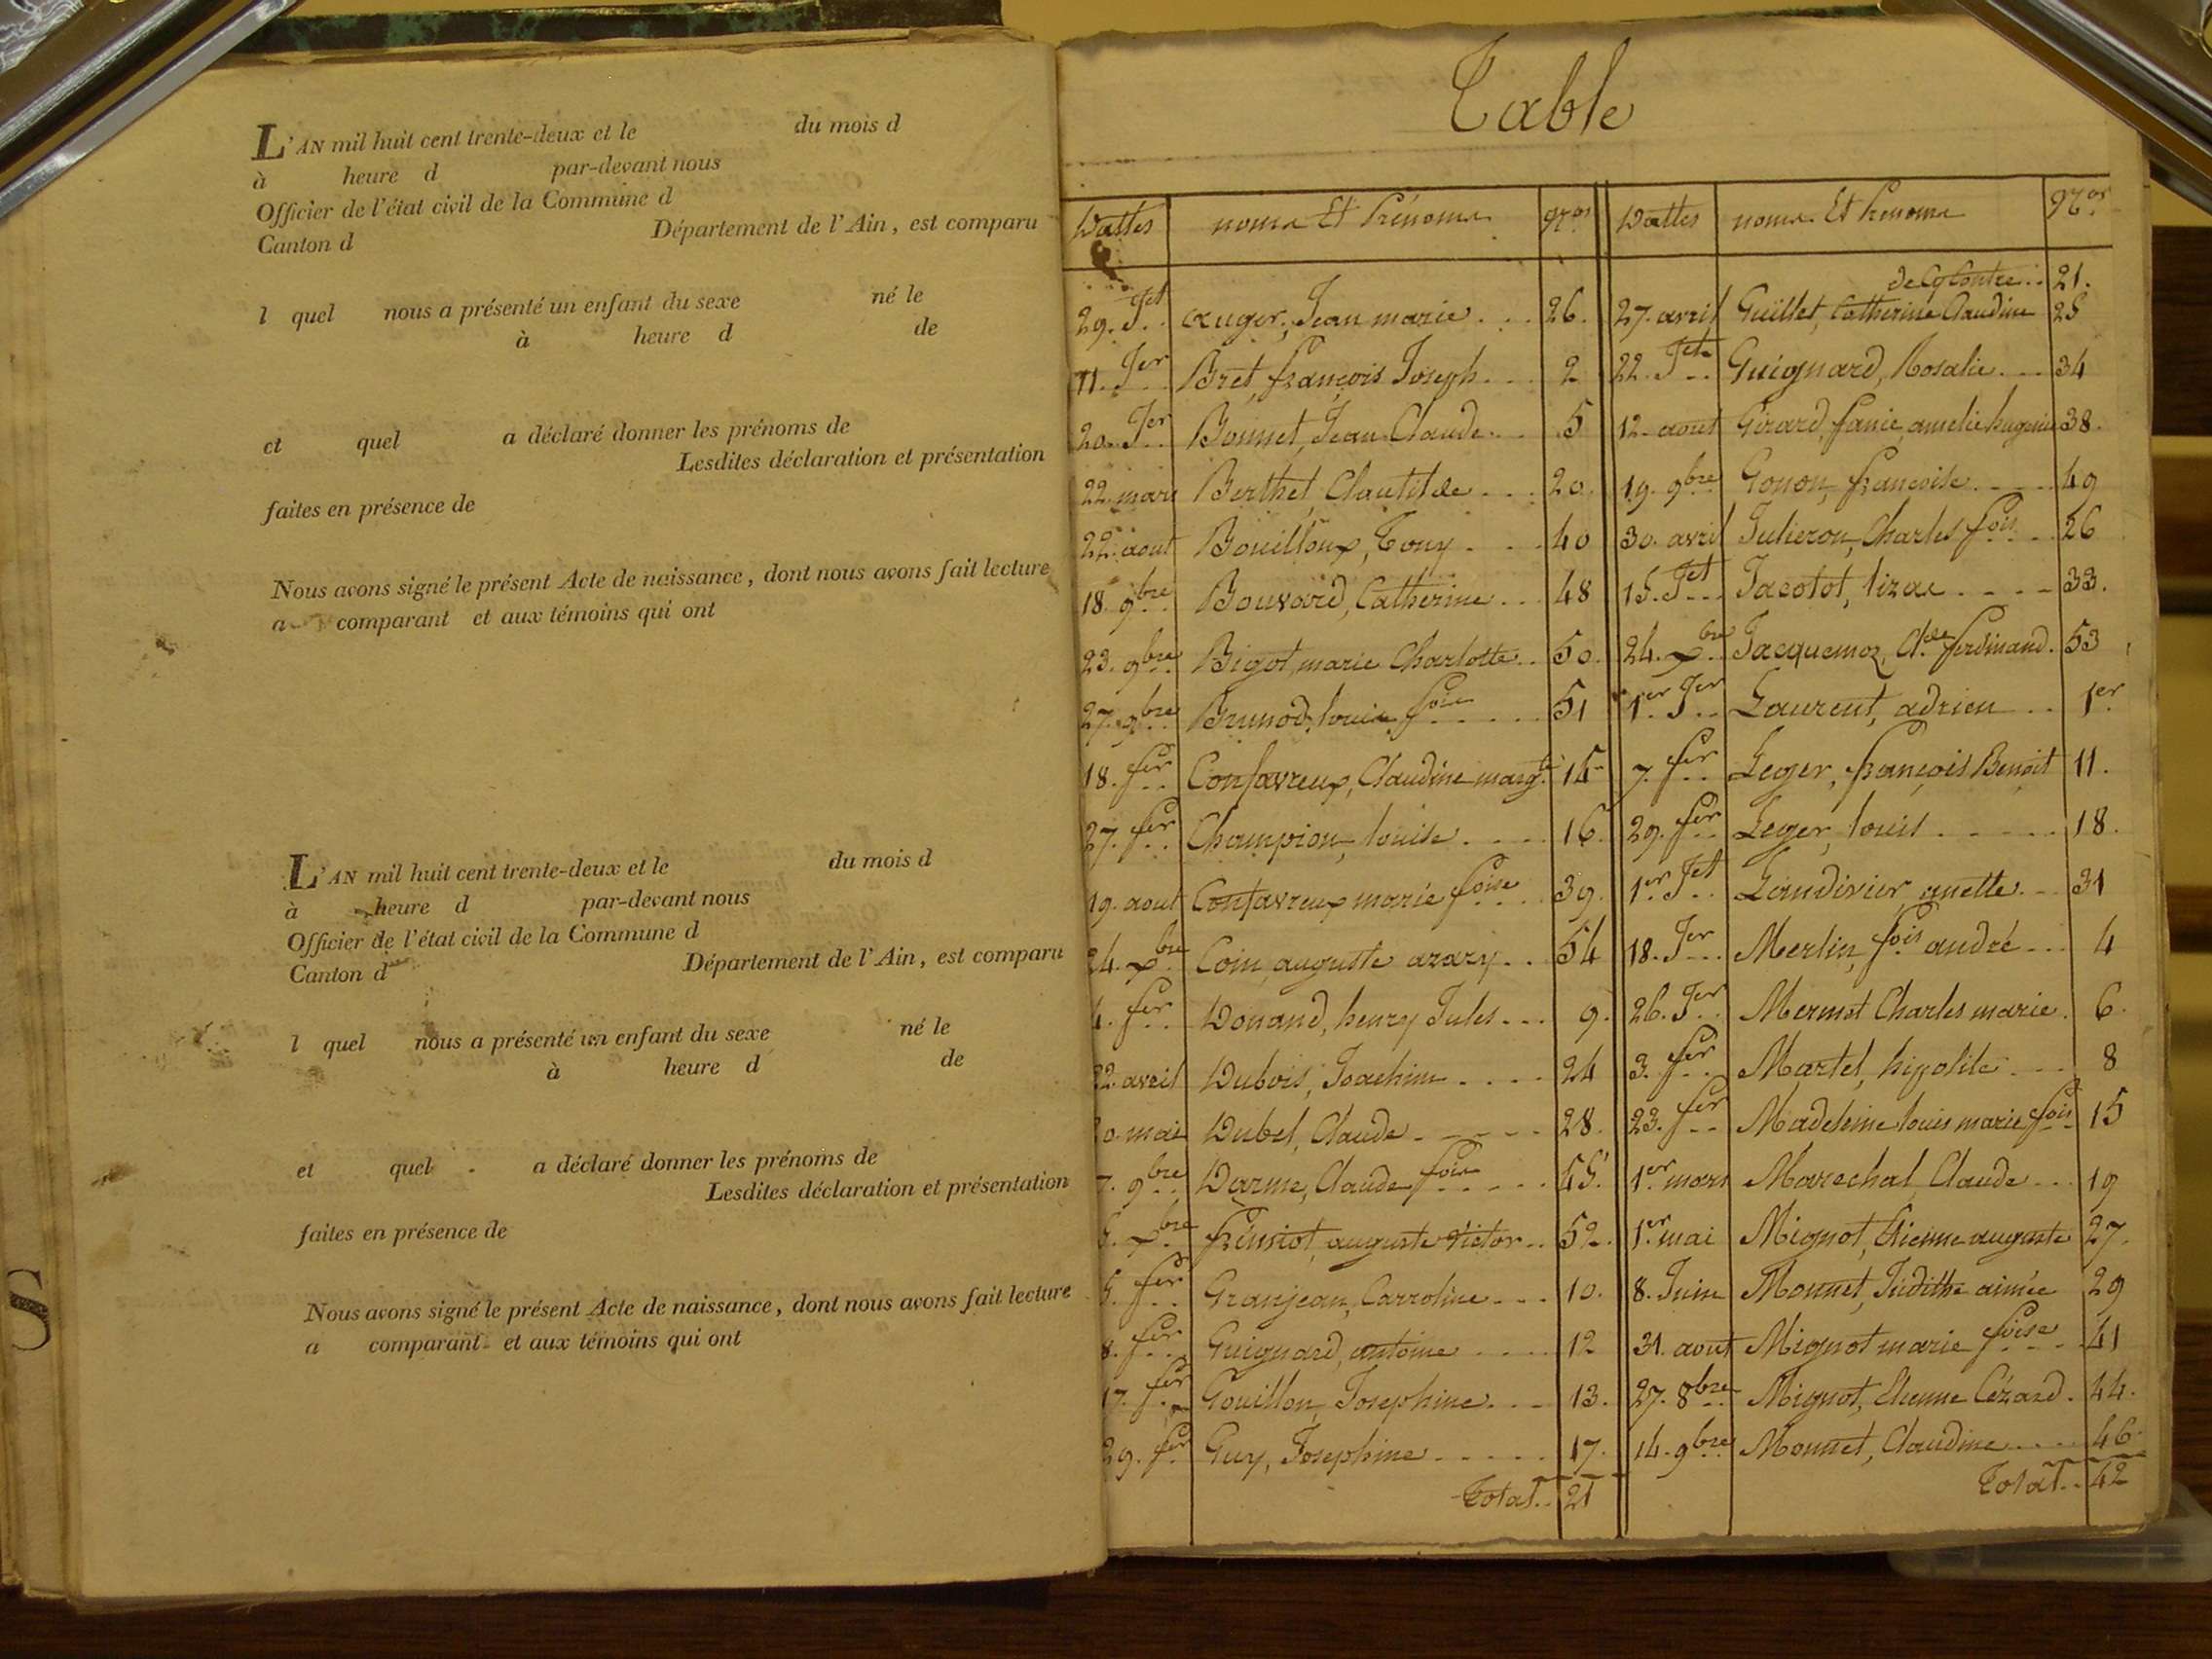 L'AN mil huit cent trente-deux et le du mois d
à heure d par-devant nous
Officier de l'état civil de la Commune d
Canton d Département de l'Ain, est comparu
l quel nous a présenté un enfant du sexe né le
à heure d de
et quel a déclaré donner les prénoms de
Lesdites déclaration et présentation
faites en présence de
Nous avons signé le présent Acte de naissance, dont nous avons fait lecture
a comparant et aux témoins qui ont
L'AN mil huit cent trente-deux et le du mois d
à heure d par-devant nous
Officier de l'état civil de la Commune d
Canton d Département de l'Ain, est comparu
l quel nous a présenté un enfant du sexe né le
à heure d de
et quel a déclaré donner les prénoms de
Lesdites déclaration et présentation
faites en présence de
Nous avons signé le présent Acte de naissance, dont nous avons fait lecture
a comparant et aux témoins qui ont
S
Table
Dattes noms Et Prénoms Nros
29. Jet auger, Jean marie 26.
11. Jer Bret, françois Joseph 2
20. Jer Bonnet, Jean Claude 5
22. mars Berthet, Clautilde 20
22. aout Bouilloux, Tony 40
18. 9bre Bouvard, Catherine 48
23. 9bre Bigot, marie Charlotte 50.
27. 9bre Brunod, louise foise 51
18. fer Confavreux, Claudine margte 14
27. fer Champion, louise 16.
19. aout Confavreux marie foise 39.
24. Xbre Coin, auguste azary 54
4. fer Donand, henry Jules 9.
22. avril Dubois, Joachim 24
mai Dubel, Claude 28.
7. 9bre Darme, Claude fois 45.
5. Xbre auguste Victor 52.
5. fer Granjean, Carroline 10.
8. fer Guignard, antoine 12
17. fer Gouillon, Josephine 13.
29. fer Guy, Josephine 17.
Total 21
Dattes noms Et Prenoms Nros
de Cy Contre 21.
27. avril Guillet, Catherine Claudine 25
22. Jet Guignard, Rosalie 34
12. aout Girard, fanie, amelie Eugenie 38.
19. 9bre Gonon, francoise 49
30. avril Julieron, Charles fois 26
15. Jet Jacotot, lizae 33.
24. Xbre Jacquemoz, Cde ferdinand. 53
1er Jer Laurent, adrien 1er
7. fer Leger, françois Benoit 11.
29. fer Leger, louis 18.
1er Jet Landivier, anette 31
18. Jer Merlin, fois andré 4
26. Jer Mermet Charles marie. 6.
3. fer Martel, hipolite 8
23. fer Madeleine louis marie fois 15
1er mars Marechal, Claude 19
1er mai Mignot, Etienne auguste 27.
8. Juin Monnet, Judithe aimée 29
31. aout Mignot marie foise 41
27. 8bre Mignot, Etienne Cézard. 44.
14. 9bre Monnet, Claudine 46.
Total 42